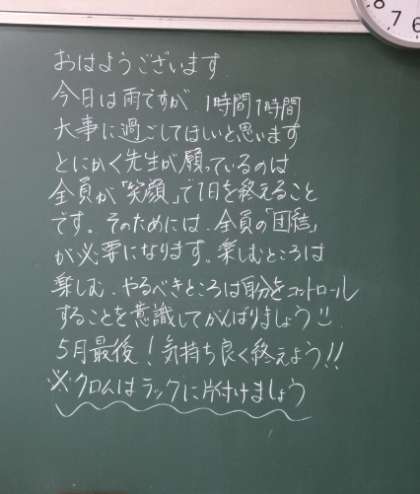 8
7
6
おはようございます
今日は雨ですが 1時間1時間
大事に過ごしてほしいと思います
とにかく先生が願っているのは
全員が「笑顔」で1日を終えること
です。そのためには、全員の「団結」
が必要になります。楽しむところは
楽しむ、やるべきところは自分をコントロール
することを意識してがんばりましょう!!
5月最後!気持ち良く終えよう!!
※クロムはラックに片付けましょう